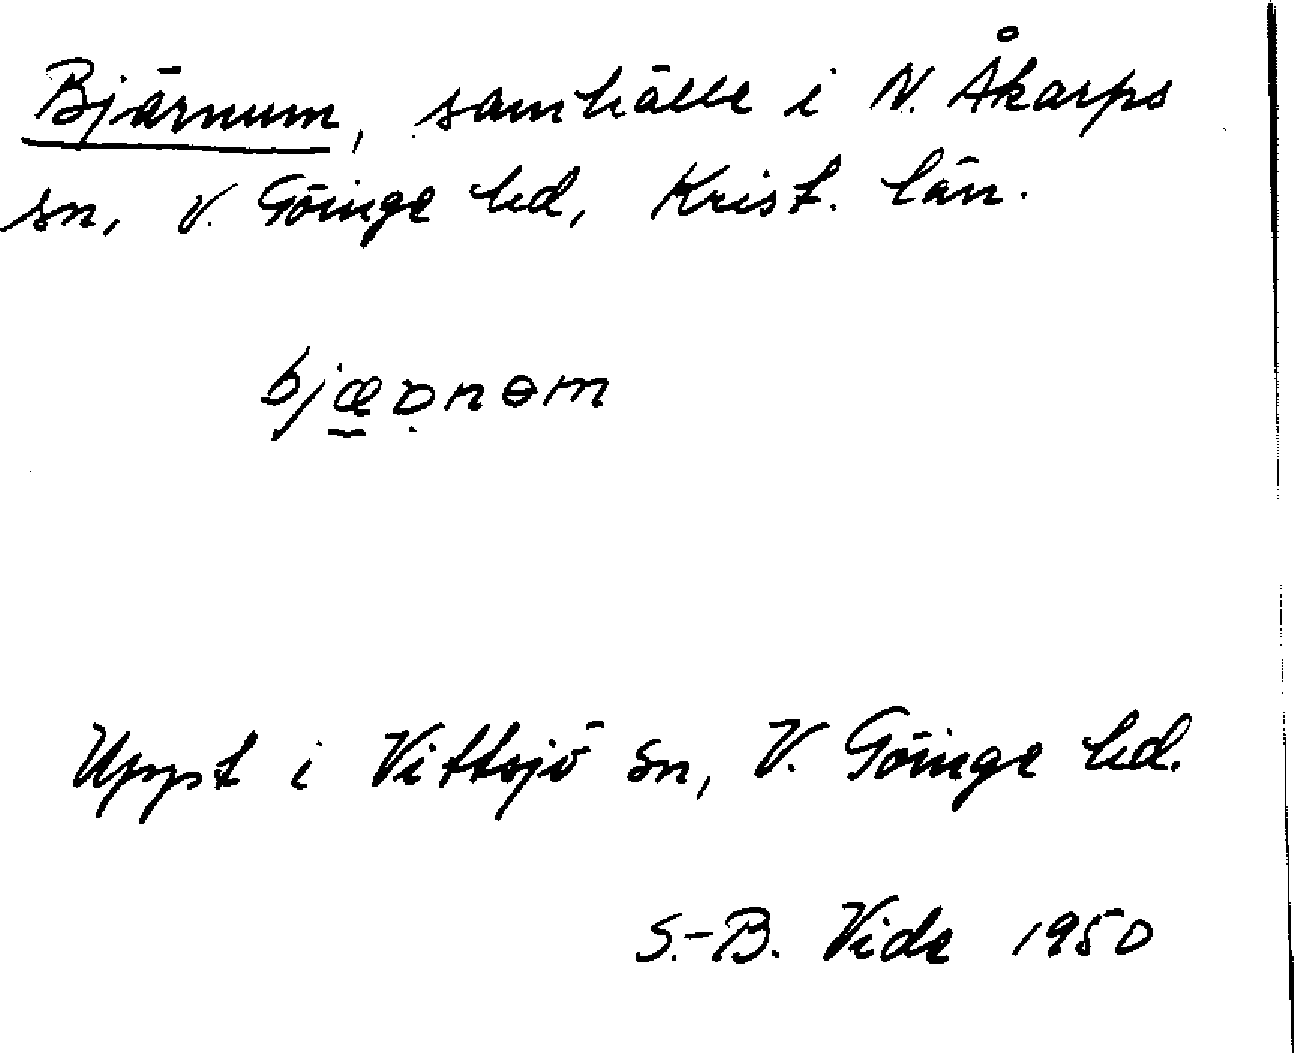 Bjärnum, samhälle i N. Åkarps
sn, V. Göinge hd, Krist. län.
Uppt i Vittsjö sn, V. Göinge hd.
S.-B. Vide 1950